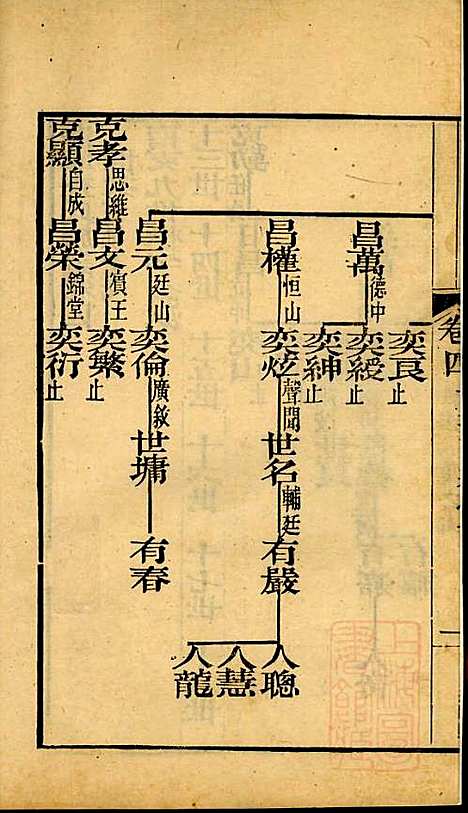 卷四
奕良止
昌萬德中奕綬止
奕紳止
昌權恒山奕炫聲聞世名輔廷有嚴人聰
人慧
人龍
昌元廷山奕倫廣敘世墉有春
克孝思維昌文賓王奕繁止
克顯自成昌榮錦堂奕衍止